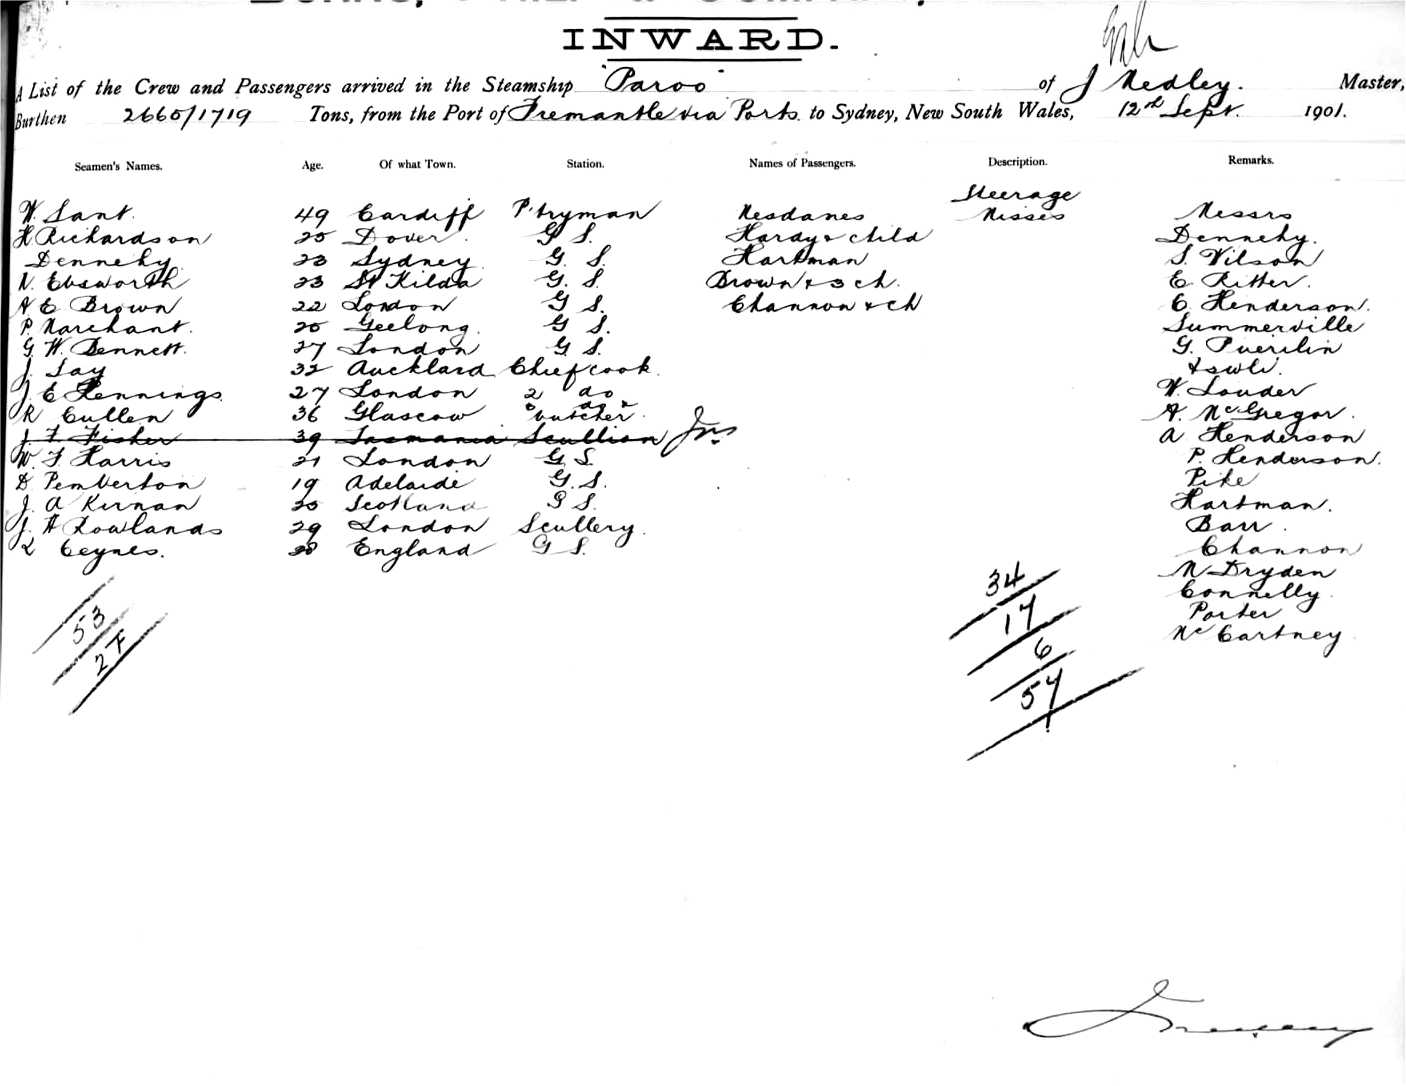 INWARD.
A List of the Crew and Passengers arrived in the Steamship "Paroo" of J Medley. Master,
Burthen 2665/1719 Tons, from the Port of Fremantle via Ports to Sydney, New South Wales, 12th Sept. 1901.
Seamen's Names. Age. Of what Town. Station. Names of Passengers. Description. Remarks.
Steerage
W. Sant. 49 Cardiff P'tryman Mesdames Misses Messrs
H Richardson 25 Dover. G S. Hardy & child Dennehy.
Dennehy 23 Sydney G. S. Hartman S. Wilson
N. Ebsworth 23 St Kilda G. S. Brown & 3 ch. E Ritter.
A E Brown 22 London G S. Channon & ch E. Henderson.
P. Marchant. 25 Geelong. G S. Summerville
G. W. Bennett. 27 London G S. G.
J. Tay 32 Auckland Chief cook.
J E Hennings 27 London 2 do W. Louder
R Cullen 36 Glascow butcher. A. McGregor.
J. F Fisher 39 Tasmania Scullion A Henderson
W. F Harris 21 London G S. P. Henderson.
D Pemberton 19 Adelaide G. S. Pike
J. A Kirnan 25 Scotland G S. Hartman.
J. H Rowlands 29 London Scullery. Barr.
L Ceynes. 28 England G S. Channon
M Dryden
Connelly
Porter
Mc Cartney
34
17
6
57
53
27